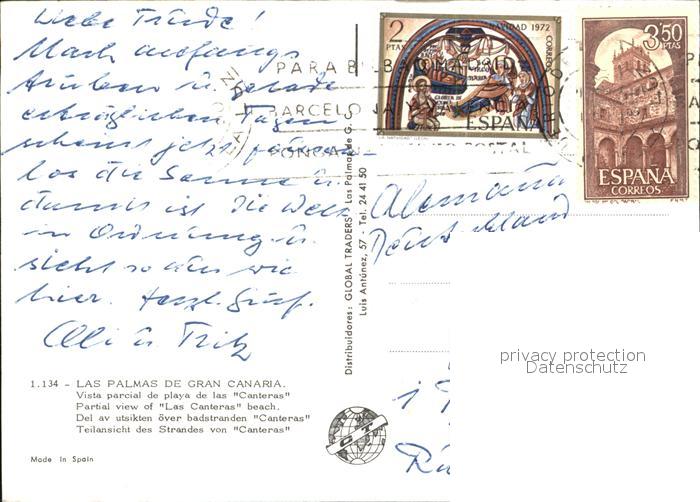 Liebe Trude!
Nach anfangs
trüben u. gerade
erträglichen Tagen
scheint jetzt
los die Sonne u.
damit ist die Welt
in Ordnung u.
sieht so aus wie
hier. Herzl. Grüße
Olli u. Fritz
1.134 - LAS PALMAS DE GRAN CANARIA.
Vista parcial de playa de las "Canteras"
Partial view of "Las Canteras" beach.
Del av utsikten över badstranden "Canteras"
Teilansicht des Strandes von "Canteras"
Made in Spain
Distribuidores: GLOBAL TRADERS - Las Palmas de G. C.
Luis Antúnez, 57 - Tel. 24 41 50
GT
PARA
BARCELONA VALENCIA
PONGA
POSTAL
2
PTAS
NAVIDAD 1972
CORREOS
ESPAÑA
3,50
PTAS
ESPAÑA
CORREOS
Alemania
Deutschland
privacy protection
Datenschutz